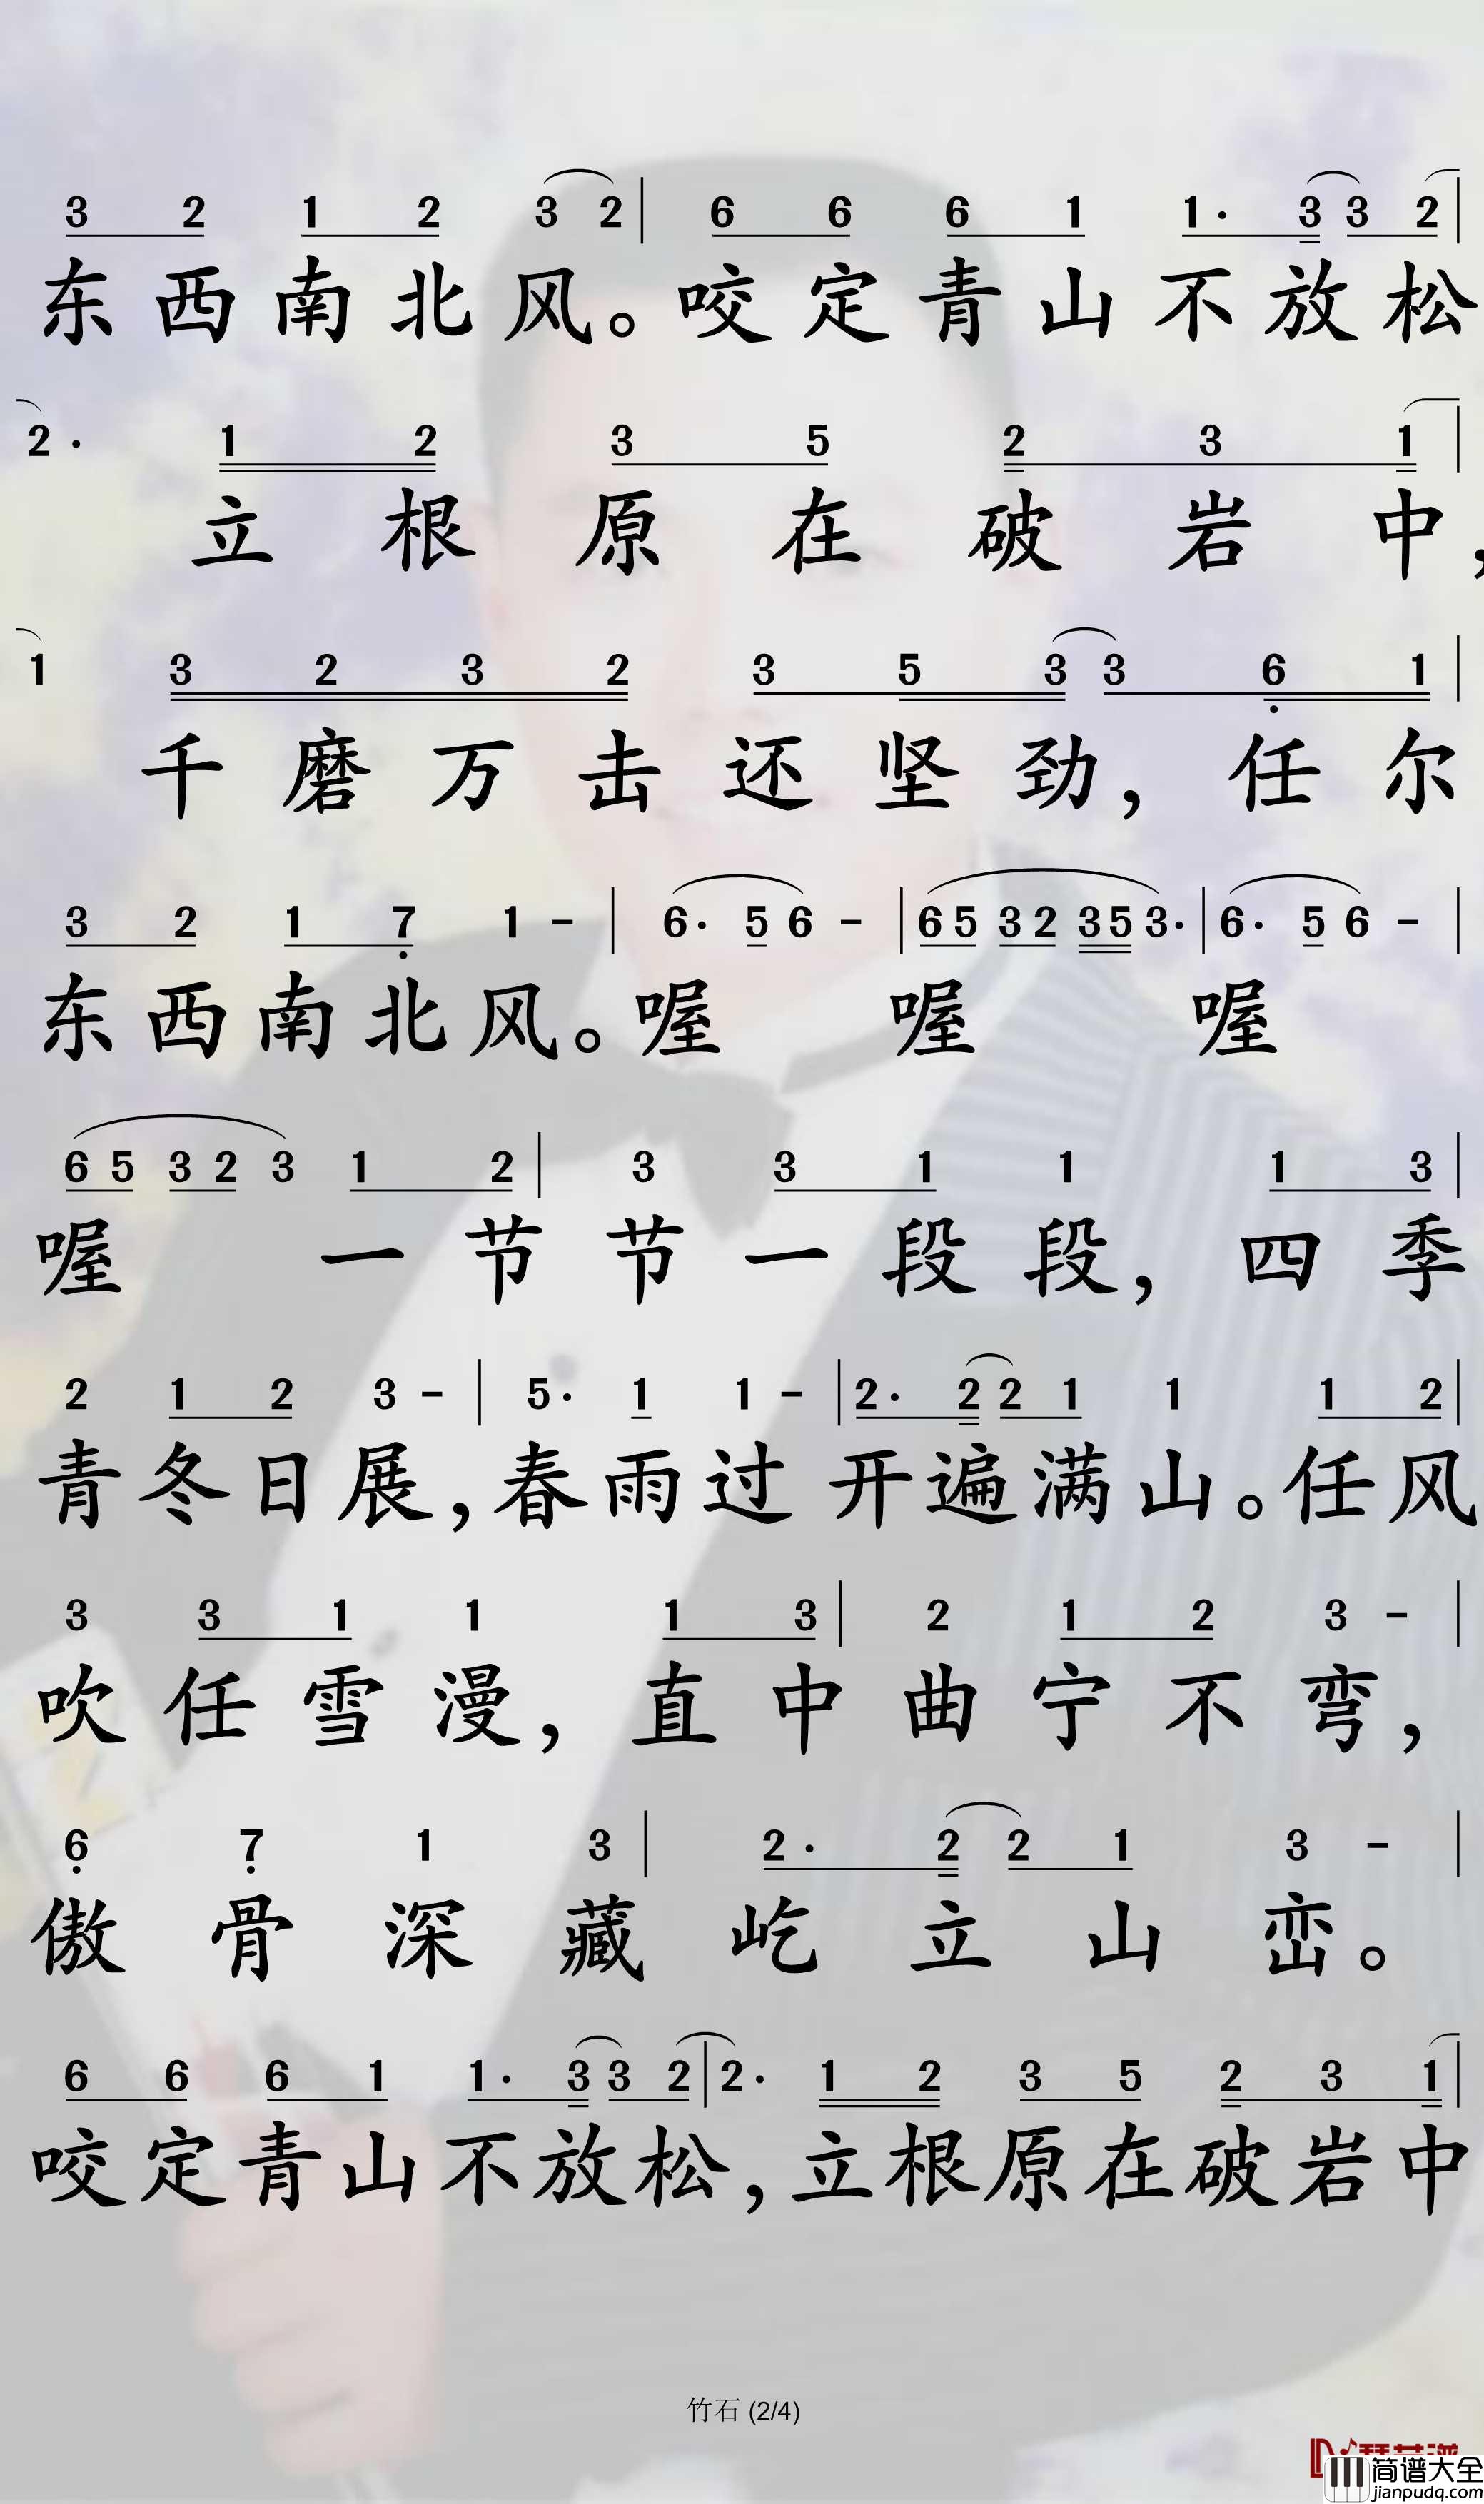 3 2 1 2 3 2 | 6 6 6 1 1· 3 3 2 |
东西南北风。咬定青山不放松
2· 1 2 3 5 2 3 1 |
立根原在破岩中，
1 3 2 3 2 3 5 3 3 6 1 |
千磨万击还坚劲，任尔
3 2 1 7 1 - | 6· 5 6 - | 6 5 3 2 3 5 3· | 6· 5 6 - |
东西南北风。喔 喔 喔
6 5 3 2 3 1 2 | 3 3 1 1 1 3 |
喔 一节节一段段，四季
2 1 2 3 - | 5· 1 1 - | 2· 2 2 1 1 1 2 |
青冬日展，春雨过开遍满山。任风
3 3 1 1 1 3 | 2 1 2 3 - |
吹任雪漫，直中曲宁不弯，
6 7 1 3 | 2· 2 2 1 3 - |
傲骨深藏屹立山峦。
6 6 6 1 1· 3 3 2 | 2· 1 2 3 5 2 3 1 |
咬定青山不放松，立根原在破岩中
竹石 (2/4)
简谱大全
jianpudq.com